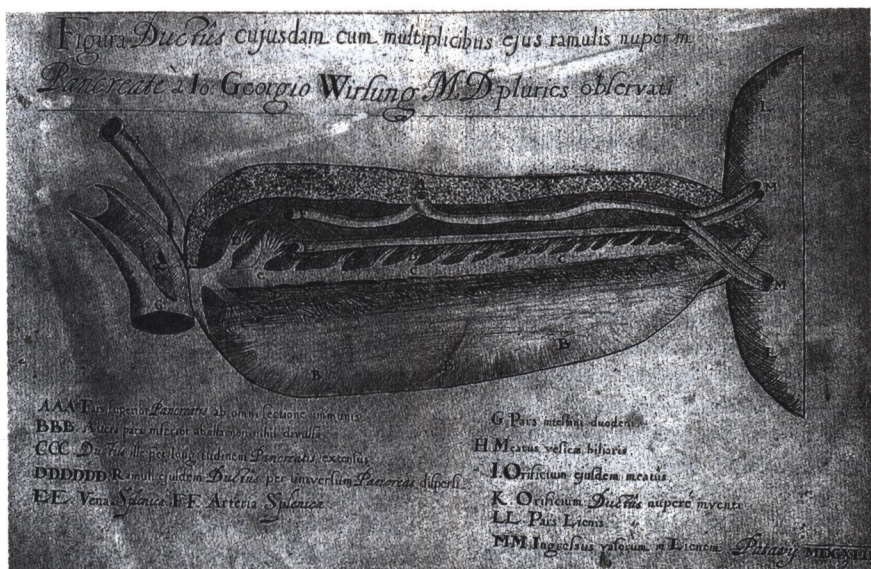 Figura Ductûs cujusdam cum multiplicibus ejus ramulis nuper in
Pancreate à Io: Georgio Wirsung M.D pluries observati
L
M
A
M
L
G
C
C
C
B
B
B
AAA Pars superior Pancreatis ab omni sectione immunis
BBB Altera pars inferior ab illa nonnihil divulsa
CCC Ductus ille per longitudinem Pancreatis extensus
DDDDDD Ramuli ejusdem Ductus per universum Pancreas dispersi
EE Vena Splenica FF Arteria Splenica
G Pars intestini duodeni
H Meatus vesicæ biliaris
I Orificium ejusdem meatus
K Orificium Ductûs nuperè inventi
LL Pars Lienis
MM Ingressus vasorum in Lienem Patavij